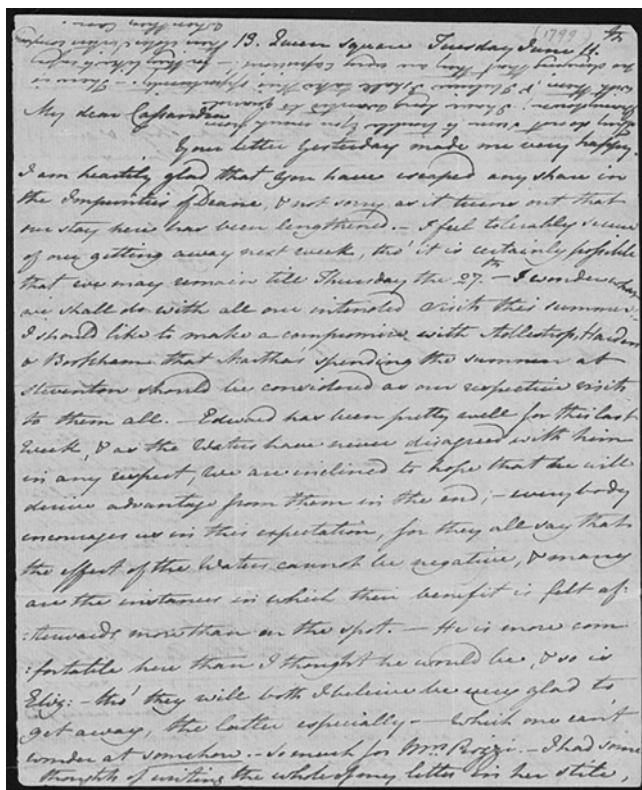 (1799)
13. Queen Square Tuesday June 11.
My dear Cassandra
Your letter yesterday made me very happy.
I am heartily glad that You have escaped any share in
the Impurities of Deane, & not sorry as it turns out that
our stay here has been lengthened. – I feel tolerably secure
of our getting away next week, tho' it is certainly possible
that we may remain till Thursday the 27th – I wonder what
we shall do with all our intended visits this summer.
I should like to make a compromise with Adlestrop, Harden
& Bookham that Martha's spending the summer at
Steventon should be considered as our respective visits
to them all. – Edward has been pretty well for this last
Week, & as the Waters have never disagreed with him
in any respect, we are inclined to hope that he will
derive advantage from them in the end; – everybody
encourages us in this expectation, for they all say that
the effect of the Waters cannot be negative, & many
are the instances in which their benefit is felt af:
:terwards more than on the spot. – He is more com
:fortable here than I thought he would be, & so is
Eliz: – tho' they will both I beleive be very glad to
get away, the latter especially – Which one can't
wonder at somehow. – So much for Mrs. Piozzi. – I had some
thoughts of writing the whole of my letter in her stile,
They do not seem to trouble You much from
Manydown; I have long wanted to quarrel
with them, & I beleive I shall take this opportunity. – There is
no denying that they are very capricious! – for they like to enjoy
their elder Sister's company
when they can.